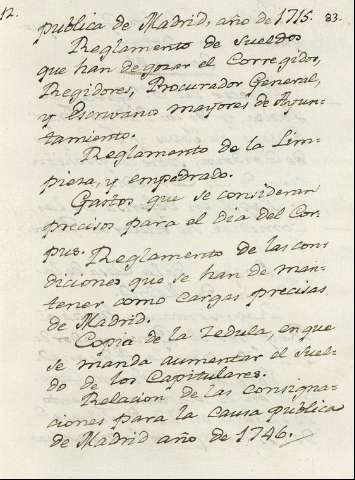 12.
83.
publica de Madrid, año de 1715.
Reglamento de Sueldos
que han de gozar el Corregidor,
Regidores, Procurador General,
y Escrivanos mayores de Ayun-
tamiento.
Reglamento de la Lim-
pieza, y empedrado.
Gastos que se consideran
precisos para el dia del Cor-
pus. Reglamento de las con-
diciones que se han de man-
tener como cargas precisas
de Madrid.
Copia de la Zedula, en que
se manda aumentar el Suel-
do de los Capitulares.
Relacion de las consigna-
ciones para la causa publica
de Madrid año de 1746.